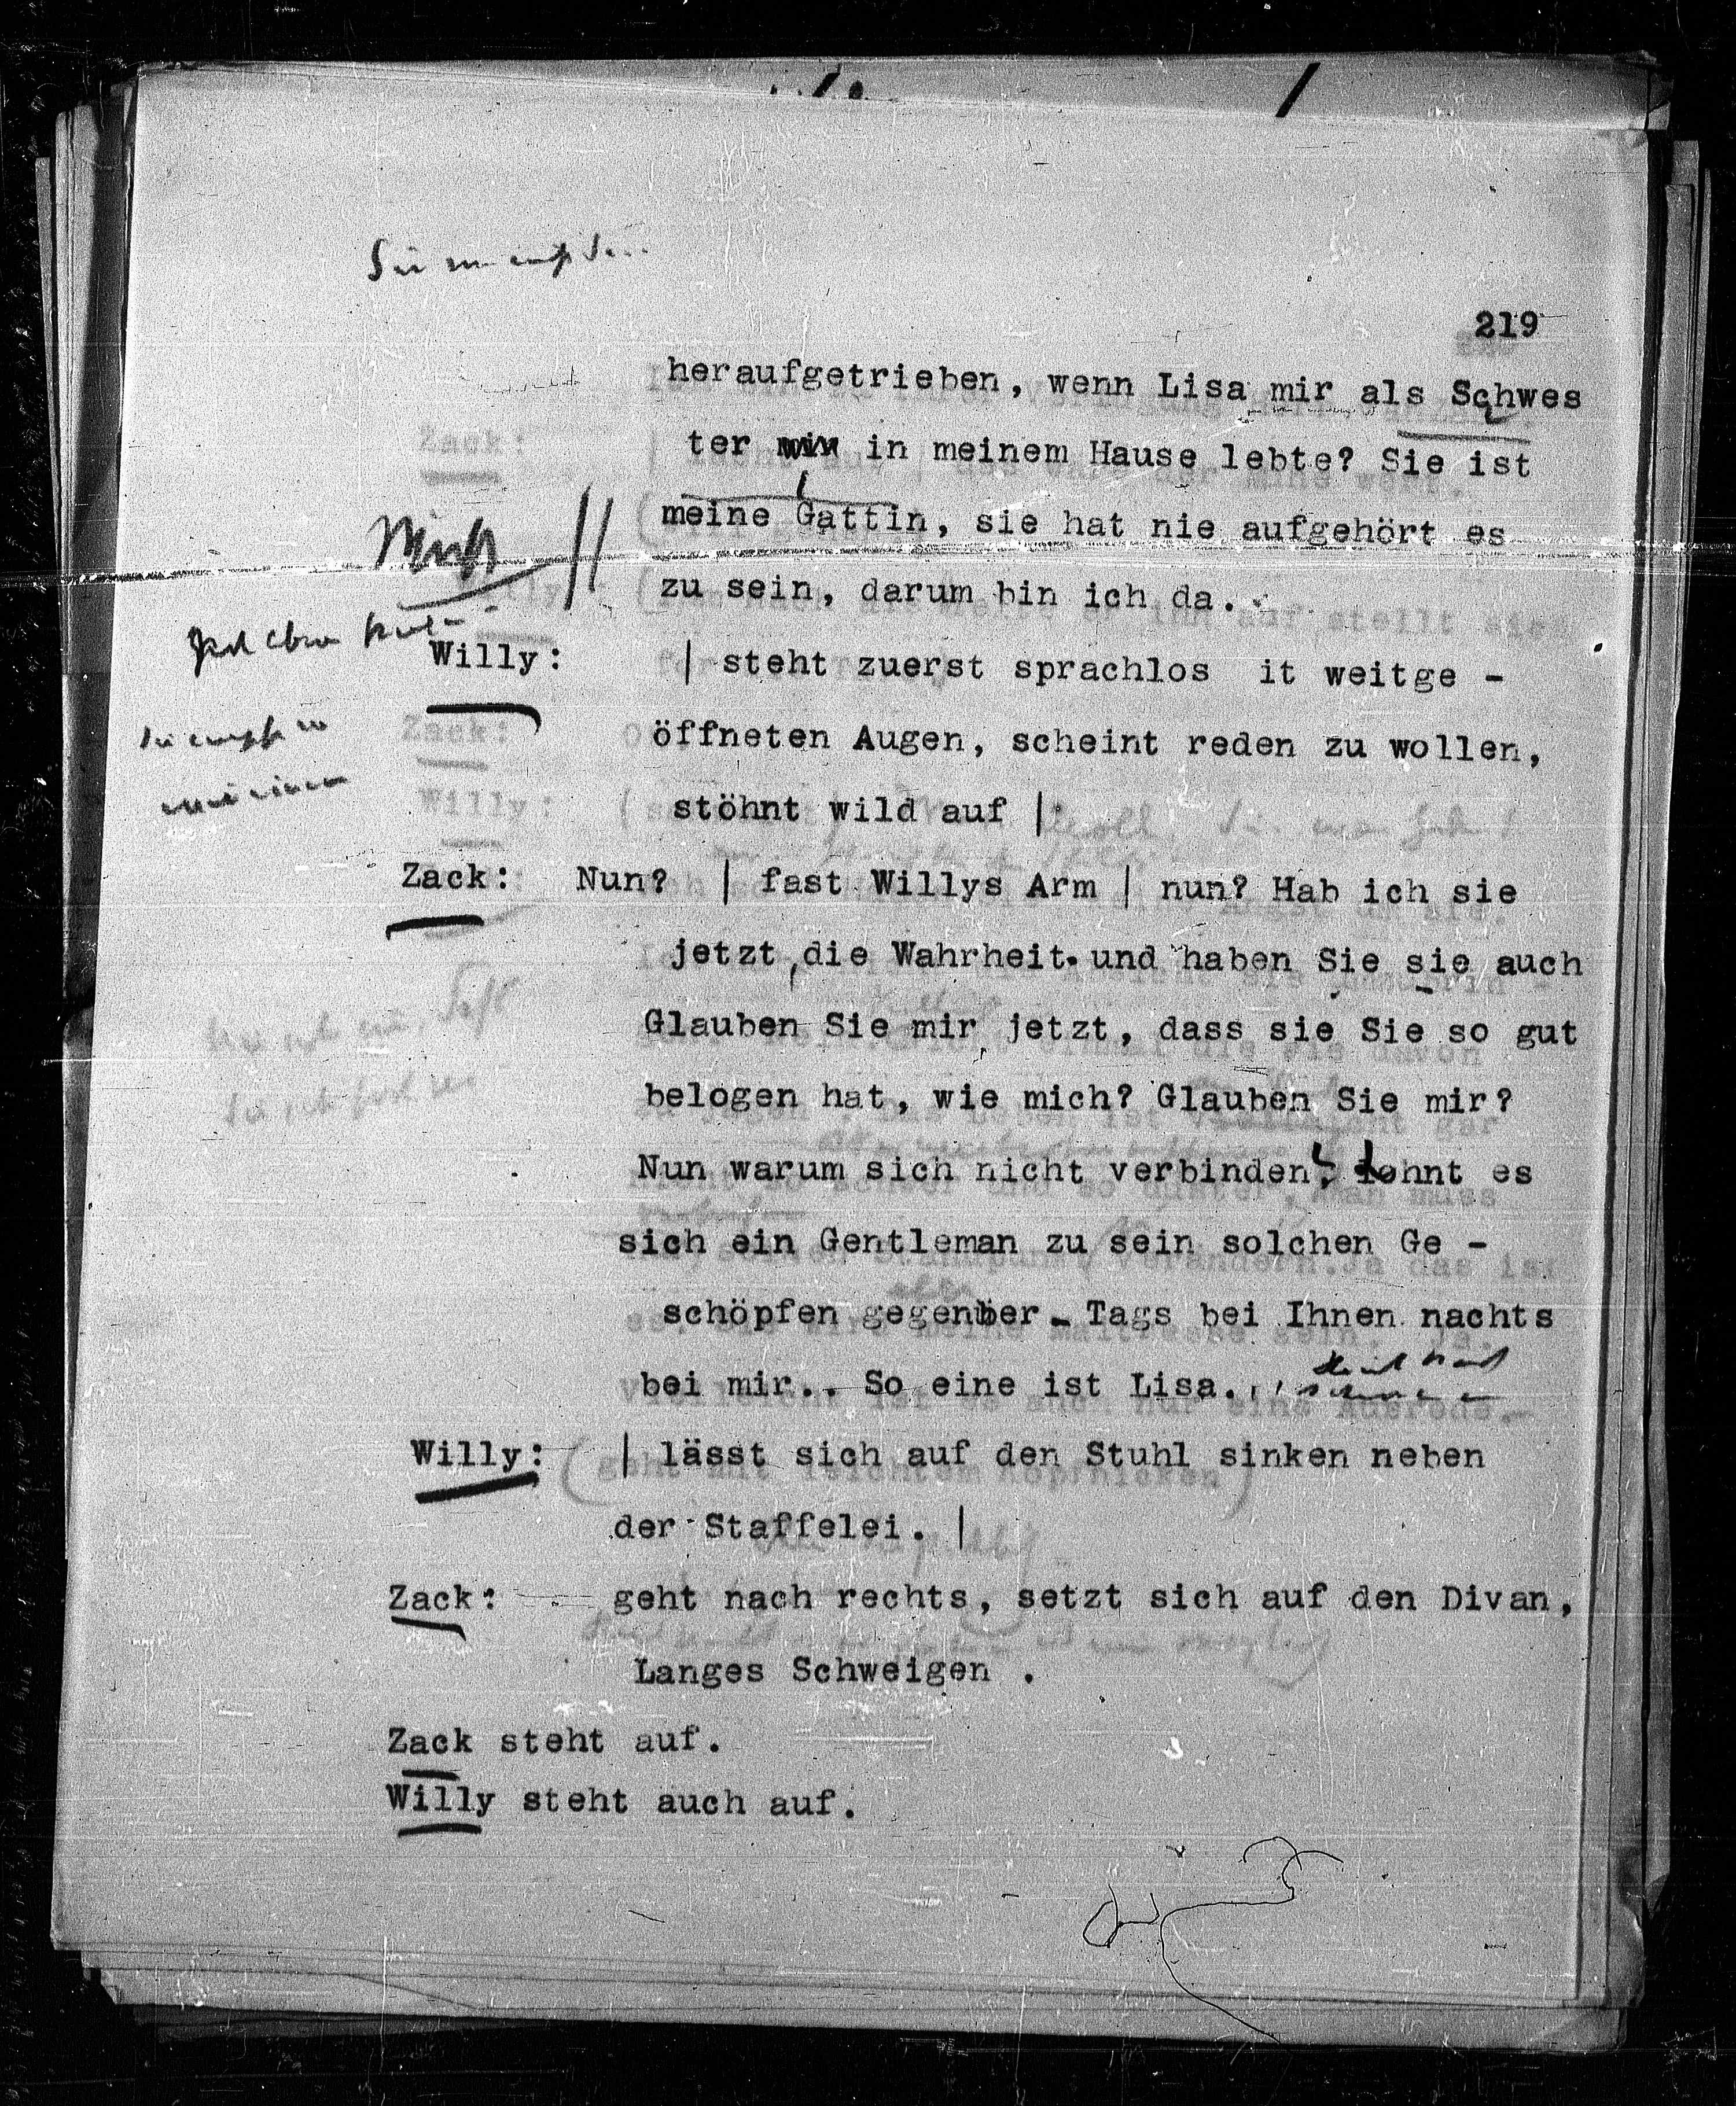 219
heraufgetrieben, wenn Lisa mir als Schwes
ter in meinem Hause lebte? Sie ist
meine Gattin, sie hat nie aufgehört es
zu sein, darum bin ich da..
Willy: | steht zuerst sprachlos it weitge -
öffneten Augen, scheint reden zu wollen,
stöhnt wild auf |
Zack: Nun? | fast Willys Arm | nun? Hab ich sie
jetzt, die Wahrheit. und haben Sie sie auch
Glauben Sie mir jetzt, dass sie Sie so gut
belogen hat, wie mich? Glauben Sie mir?
Nun warum sich nicht verbinden, lohnt es
sich ein Gentleman zu sein solchen Ge -
schöpfen gegenüber - Tags bei Ihnen nachts
bei mir.. So eine ist Lisa.
Willy: | lässt sich auf den Stuhl sinken neben
der Staffelei. |
Zack: geht nach rechts, setzt sich auf den Divan,
Langes Schweigen .
Zack steht auf.
Willy steht auch auf.